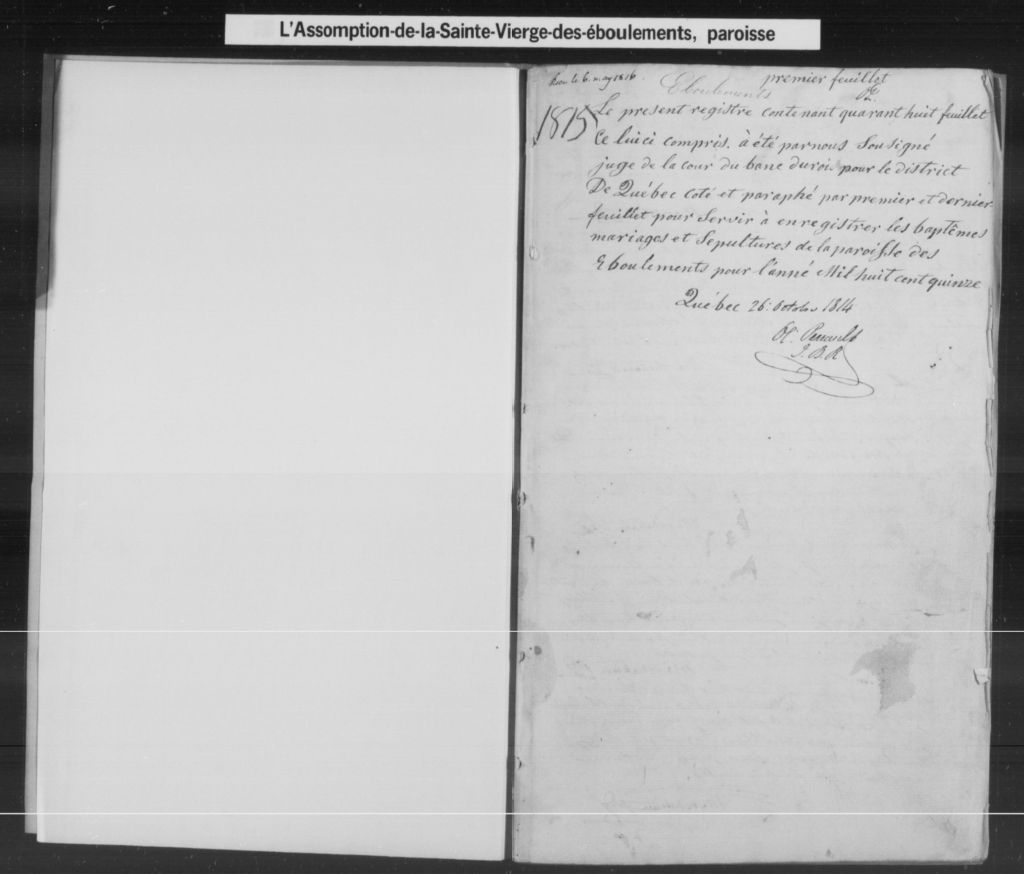 L'Assomption-de-la-Sainte-Vierge-des-éboulements, paroisse
le 6. may 1816.
premier feuillet
Eboulements
1815
Le present registre contenant quarant huit feuillet
Ce luici compris. à été parnous Sousigné
juge de la cour du banc duroi pour le district
De Québec coté et paraphé par premier et dernier
feuillet pour Servir à enregistrer les baptêmes
mariages et Sepultures de la paroisse des
Eboulements pour l'anné Mil huit cent quinze
Québec 26. octobre 1814
Ol. Perrault
J.B.R